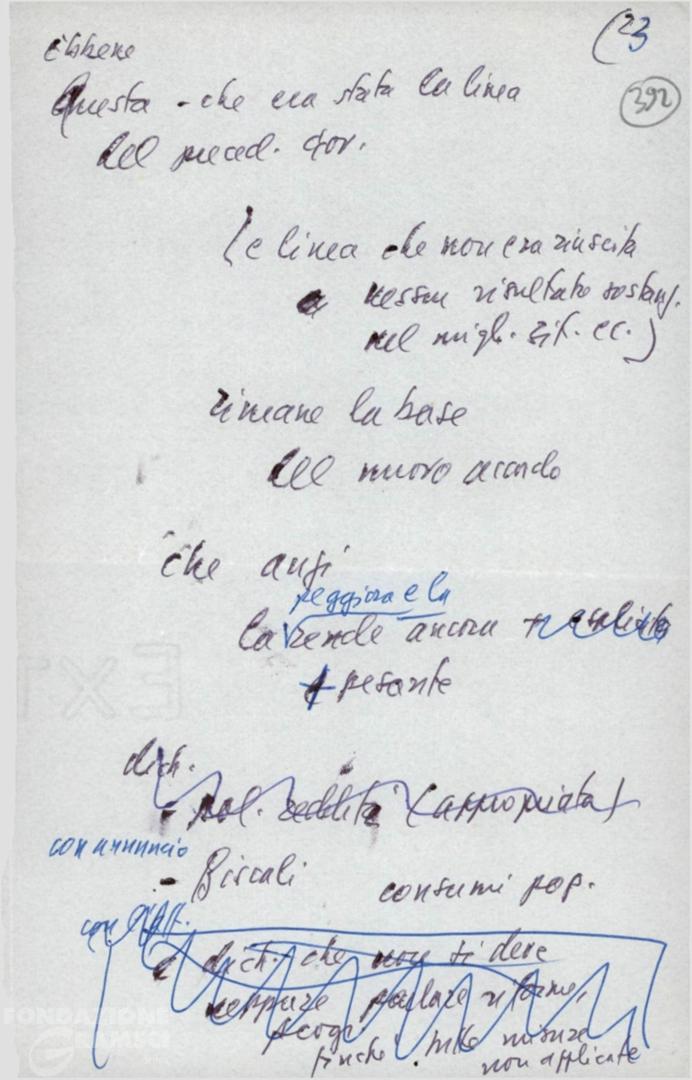 (23
392
ebbene
Questa - che era stata la linea
del preced. Gov.
(e linea che non era riuscita
a nessun risultato sostanz.
nel migl. sit. ec.)
rimane la base
del nuovo accordo
che anzi
peggiora e la
la rende ancora + esplicita
+ pesante
dich.
- pol. redditi (appropriata)
con annuncio
- Fiscali consumi pop.
con
e dich. che non si deve
neppure parlare riforme,
finché mille misure
non applicate
EXT
FONDAZIONE
GRAMSCI